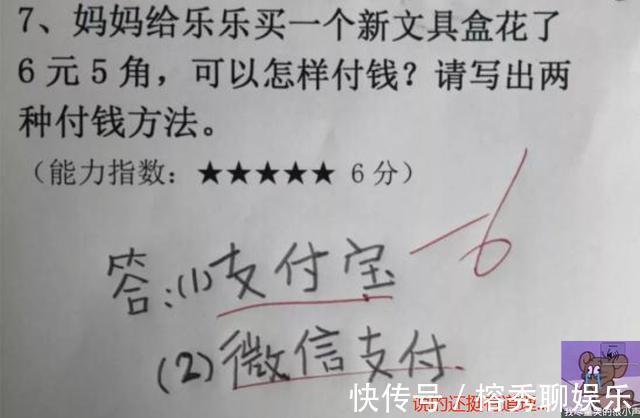 7、妈妈给乐乐买一个新文具盒花了
6元5角，可以怎样付钱？请写出两
种付钱方法。
（能力指数：★★★★★ 6分）
答：(1)支付宝
-6
(2)微信支付.
快传号／榕秀聊娱乐